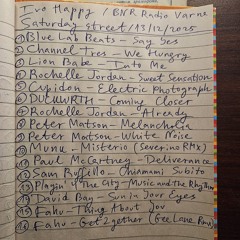 Ivo Happy / BNR Radio Varna
Saturday street / 13/12/2025
① Blue Lab Beats - Say Yes
② Channel Tres - We Hungry
③ Lion Babe - Into Me
④ Rochelle Jordan - Sweet Sensation
⑤ Cupidon - Electric Photograph
⑥ DUCKWRTH - Coming Closer
⑦ Rochelle Jordan - Already
⑧ Peter Matson - Melancholia
⑨ Peter Matson - White Noise
⑩ Munu - Misterio (Severino RMX)
⑪ Paul McCartney - Deliverance
⑫ Sam Ruffillo - Chiamami Subito
⑬ Playin' 4 The City - Music and the Rhythm
⑭ David Bay - Sun in Your Eyes
⑮ Fahu - Thing About You
⑯ Fahu - Get 2gether